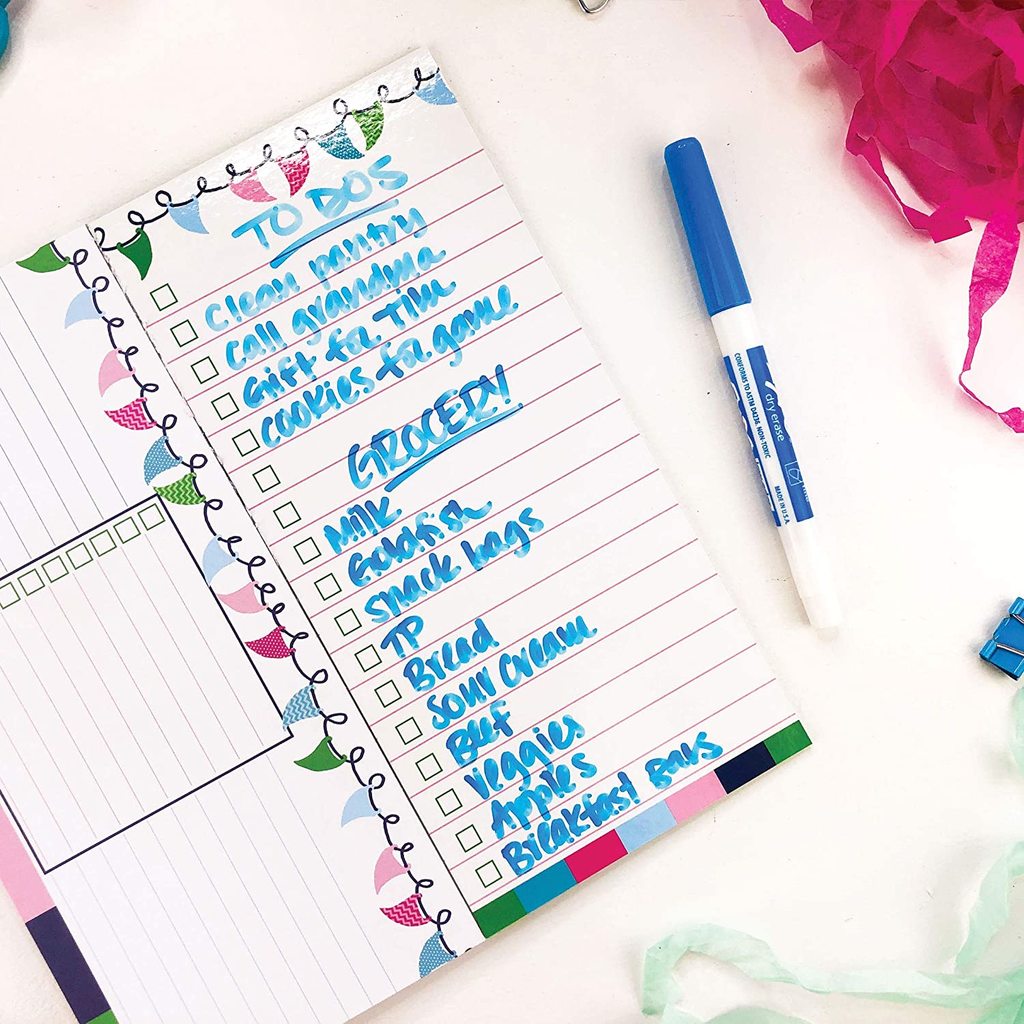 TO DOS
Clean pantry
call grandma
Gift for Tim
cookies for game
GROCERY
Milk
Goldfish
snack bags
TP
Bread
Sour cream
Beef
Veggies
Apples
Breakfast Bars
dry erase
CONFORMS TO ASTM D4236 NON-TOXIC
MADE IN U.S.A.